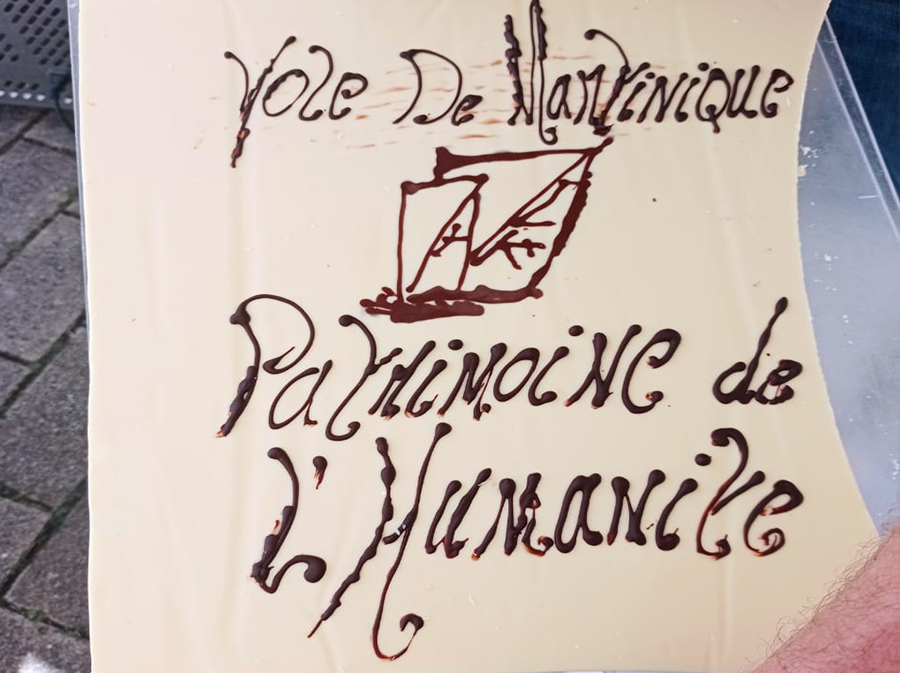 Yole De Martinique
Patrimoine de
L'Humanite